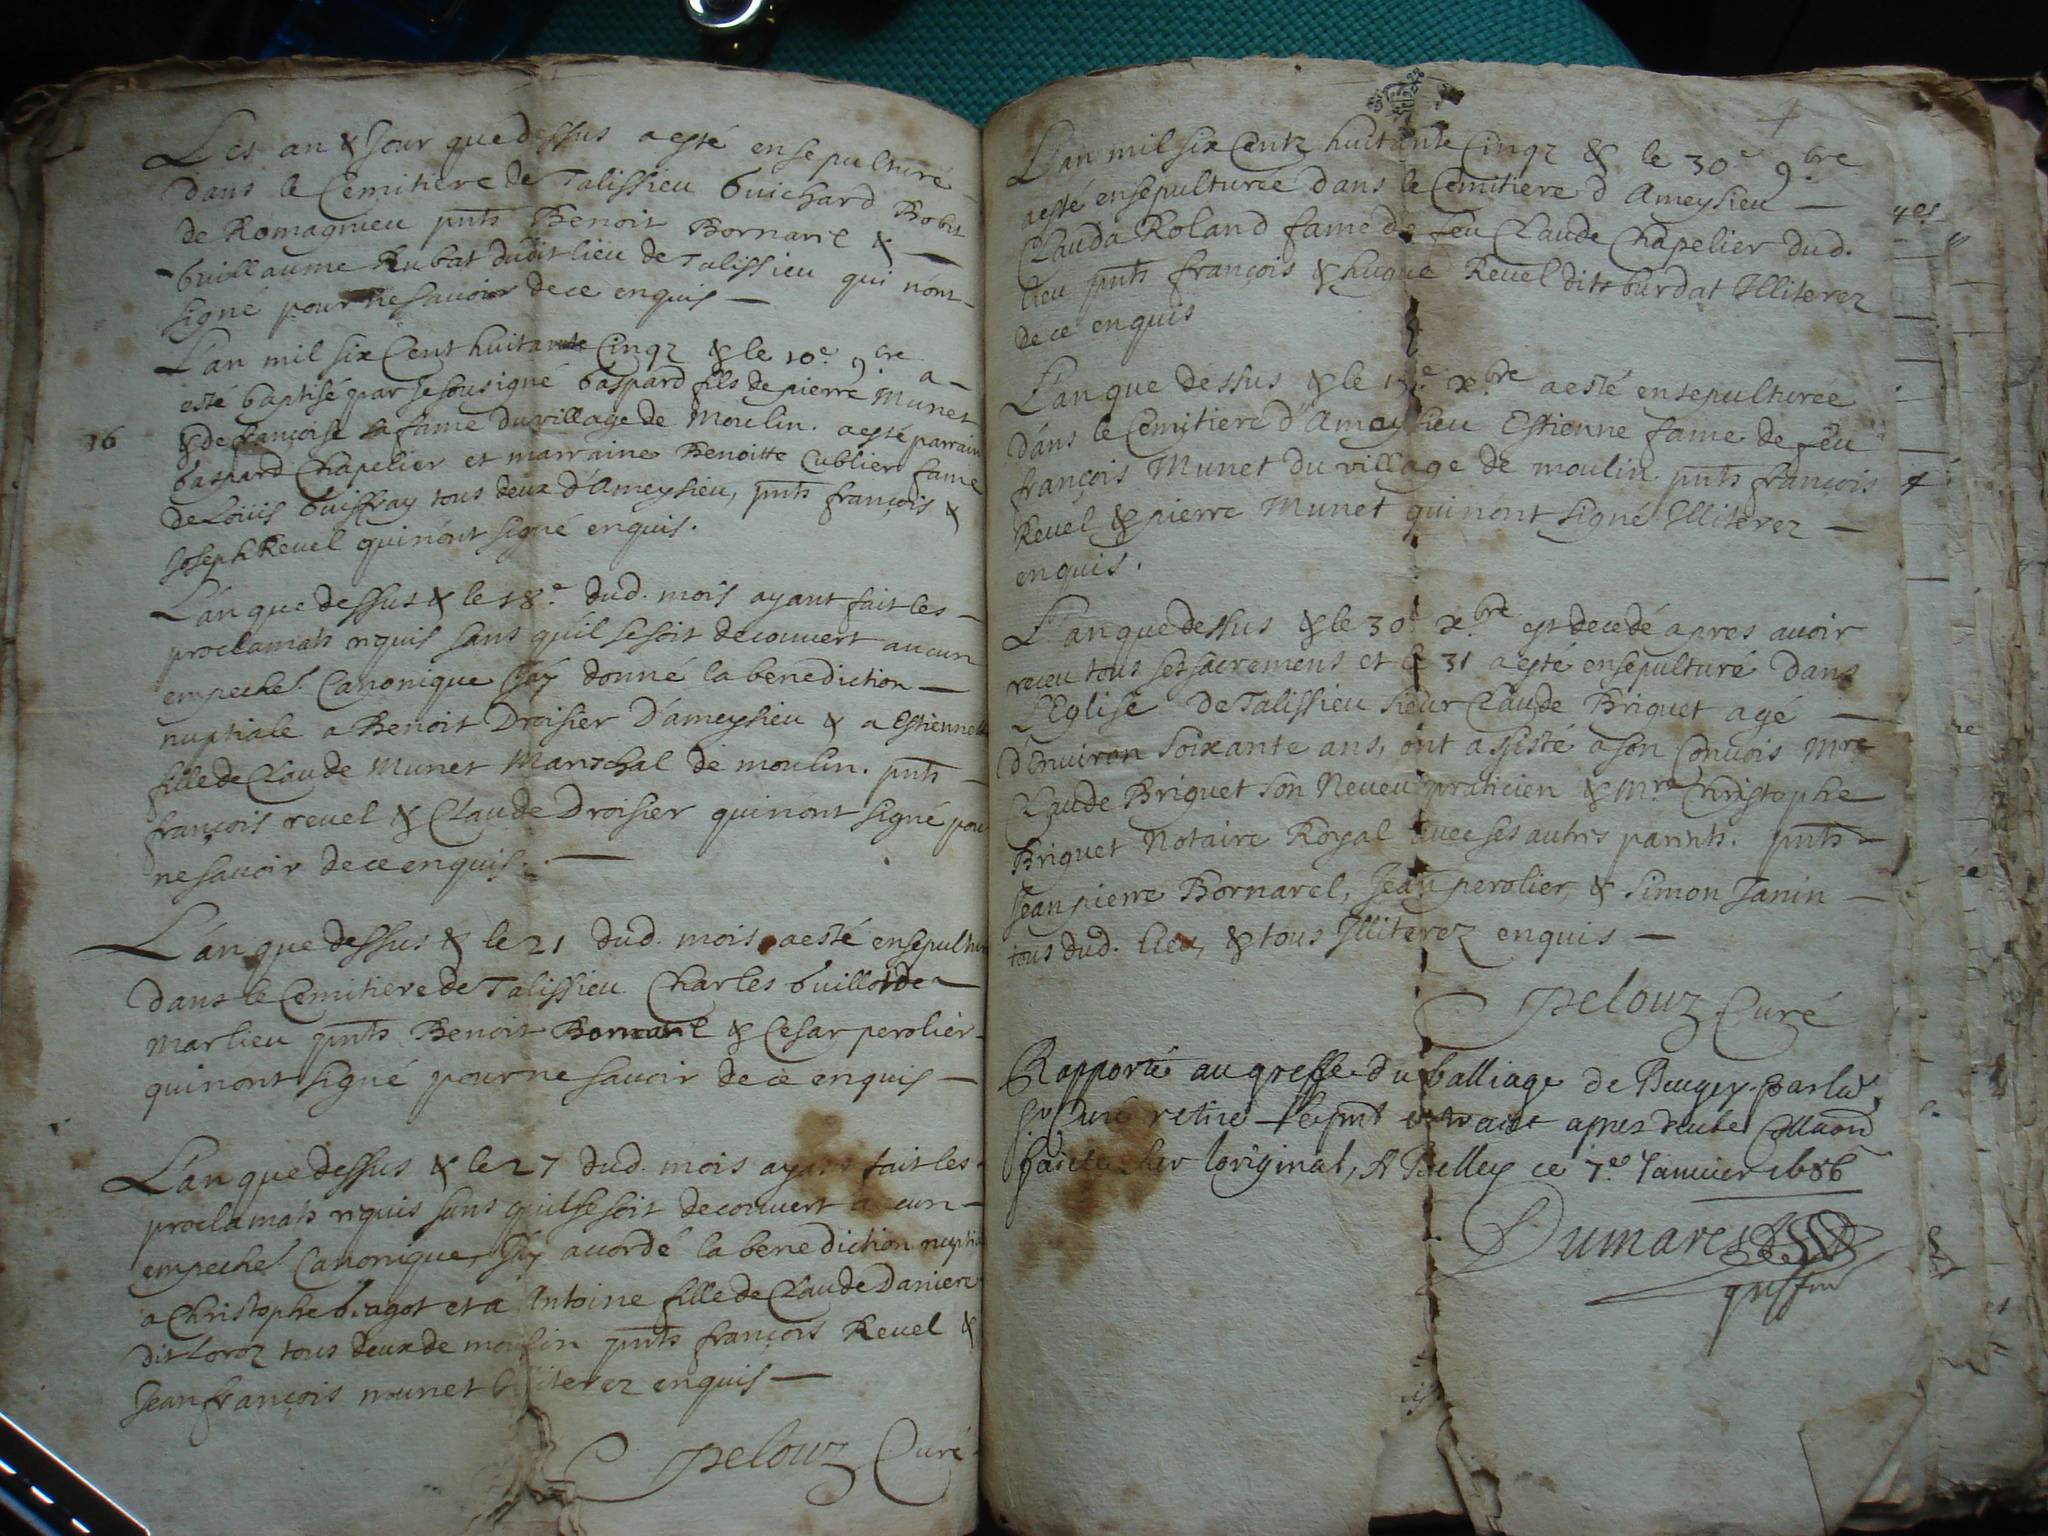 Les an & Jour que dessus a esté ensepulturé
dans le Cemitiere de Talissieu Guichard Bobit
de Romagnieu pnts Benoit Bornarel &
Guillaume Rubat dudit lieu de Talissieu qui n'ont
signé pour ne savoir de ce enquis
L'an mil six Cent huitante Cinqz & le 10e 9bre a
esté baptisé par Je sousigné Gaspard fils de pierre Munet
& de françoise sa fame du village de Moulin. a esté parrain
16
Gaspard Chapelier et marraine Benoitte Cublier fame
de Loüis Guiffray tous deux d'Ameysieu, pnts françois &
Joseph Revel qui n'ont signé enquis.
L'an que dessus & le 18e dud. mois ayant fait les
proclamats rquis sans qu'il se soit decouvert aucun
empechet Canonique J'ay donné la benediction
nuptiale a Benoit Droisier d'ameysieu & a Estiennette
fille de Claude Munet Mareschal de moulin. pnts
françois revel & Claude Droisier qui n'ont signé pour
ne savoir de ce enquis.
L'an que dessus & le 21 dud. mois a esté ensepultur
dans le Cemitiere de Talissieu Charles Guillot de
Marlieu pnts Benoit Bornarel & Cesar perolier
qui n'ont signé pour ne savoir de ce enquis
L'an que dessus & le 27 dud. mois ayant fait les
proclamats rquis sans qu'il se soit decouvert aucun
empechet Canonique, J'ay accordé la benediction nuptia
a Christophe Gagot et a Antoine fille de Claude Daniere
dit Loroz tous deux de moulin pnts françois Revel &
Jean françois munet Illiterez enquis
Pelouz Curé
L'an mil six Centz huitante Cinqz & le 30e 9bre
a esté ensepulturée dans le Cemitiere d'Ameysieu
Clauda Roland fame de feu Claude Chapelier dud.
lieu pnts françois & hugue Revel dits burdat Illiterez
de ce enquis
L'an que dessus & le xbre a esté ensepulturee
dans le Cemitiere d'Ameysieu Estienne fame de feu
françois Munet du village de moulin pnts françois
Revel & pierre Munet qui n'ont signé Illiterez
enquis.
L'an que dessus & le 30e xbre est decedé apres avoir
receu tous ses sacremens et le 31 a esté ensepulturé dans
l'Eglise de Talissieu sieur Claude Briguet agé
d'environ soixante ans, ont assisté a son Convois Mre
Claude Briguet son Neveu praticien & Mre Christophe
Briguet Notaire Royal avec ses autres parents. pnts
Jean pierre Bornarel, Jean perolier, & Simon Janin
tous dud. lieu, & tous Illiterez enquis
Pelouz Curé
Rapporté au greffe du balliage de Beugey par led.
sr Curé retiré le pnt extraict apres deube Colla͠on
faicte sur loriginal, A Belley ce 7e Janvier 1686
Dumares
greffier